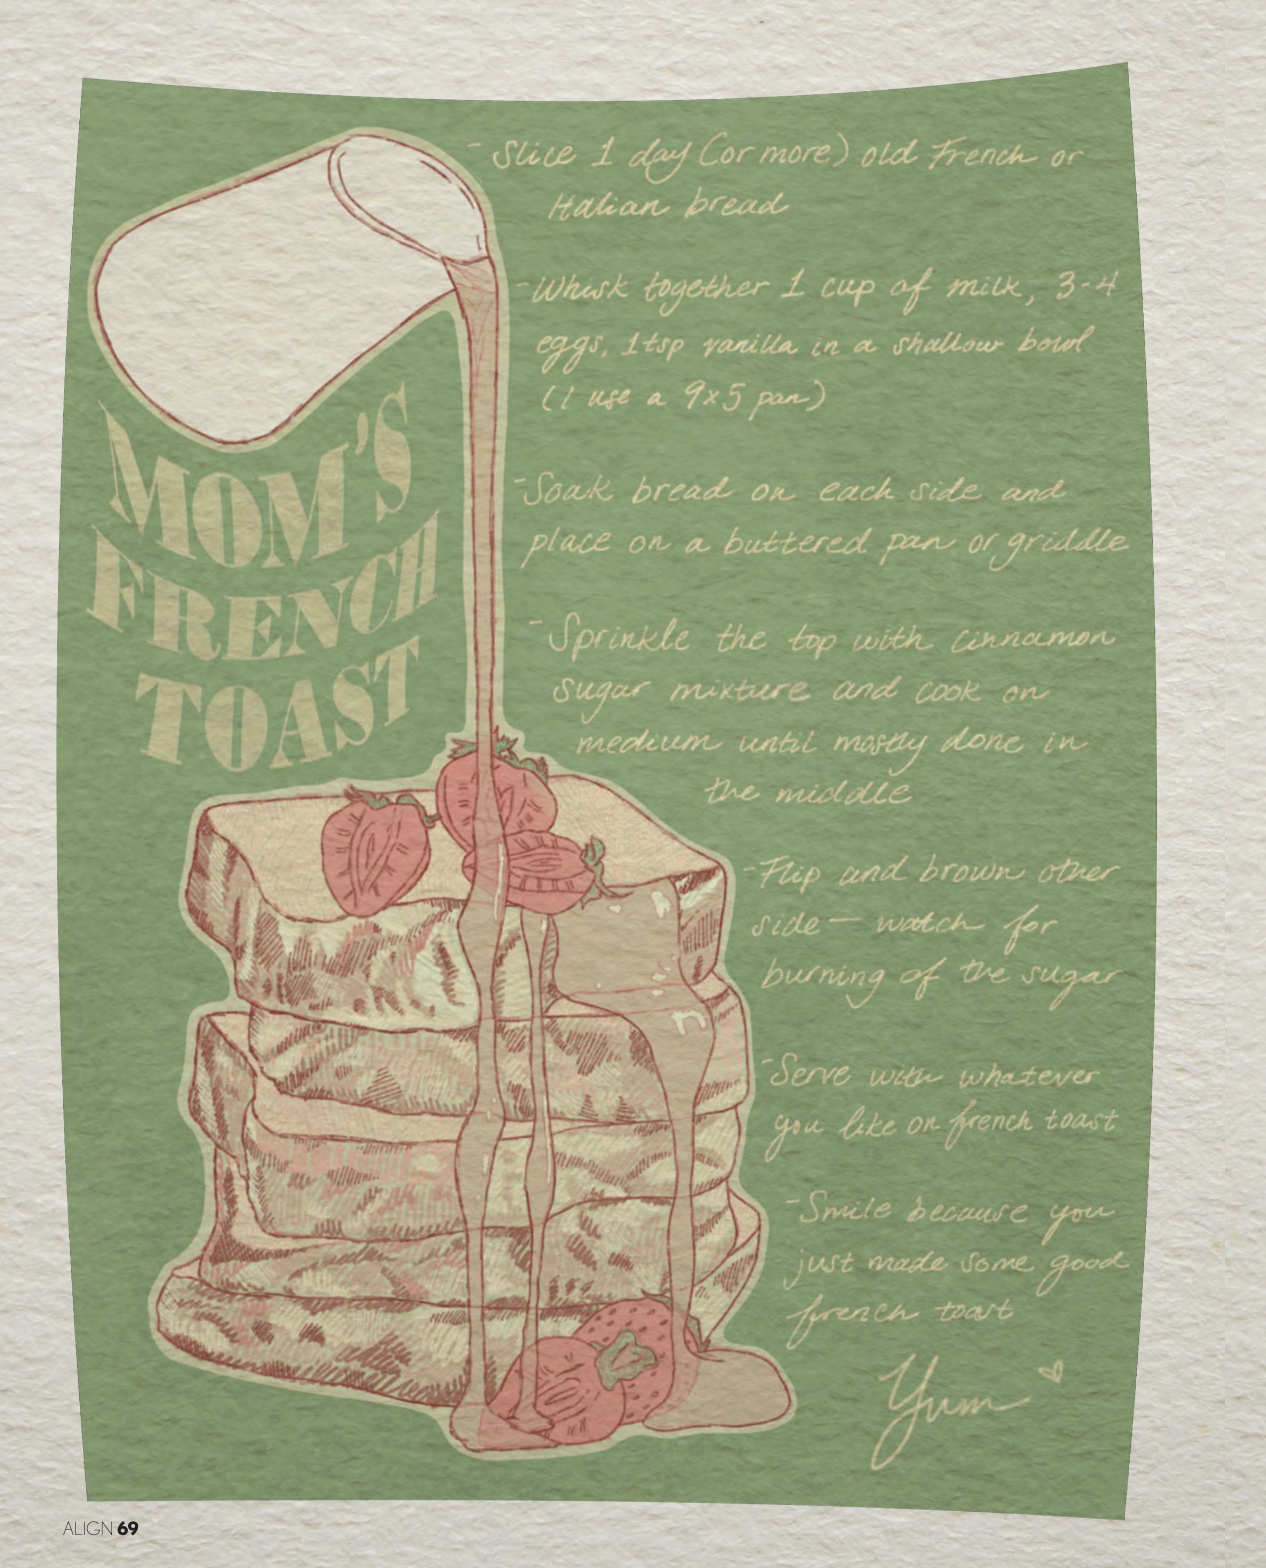 MOM'S
FRENCH
TOAST
- Slice 1 day (or more) old French or
Italian bread
- Whisk together 1 cup of milk, 3-4
eggs, 1 tsp vanilla in a shallow bowl
(I use a 9x5 pan)
- Soak bread on each side and
place on a buttered pan or griddle
- Sprinkle the top with cinnamon
sugar mixture and cook on
medium until mostly done in
the middle
- Flip and brown other
side — watch for
burning of the sugar
- Serve with whatever
you like on french toast
- Smile because you
just made some good
french toast
Yum
ALIGN 69